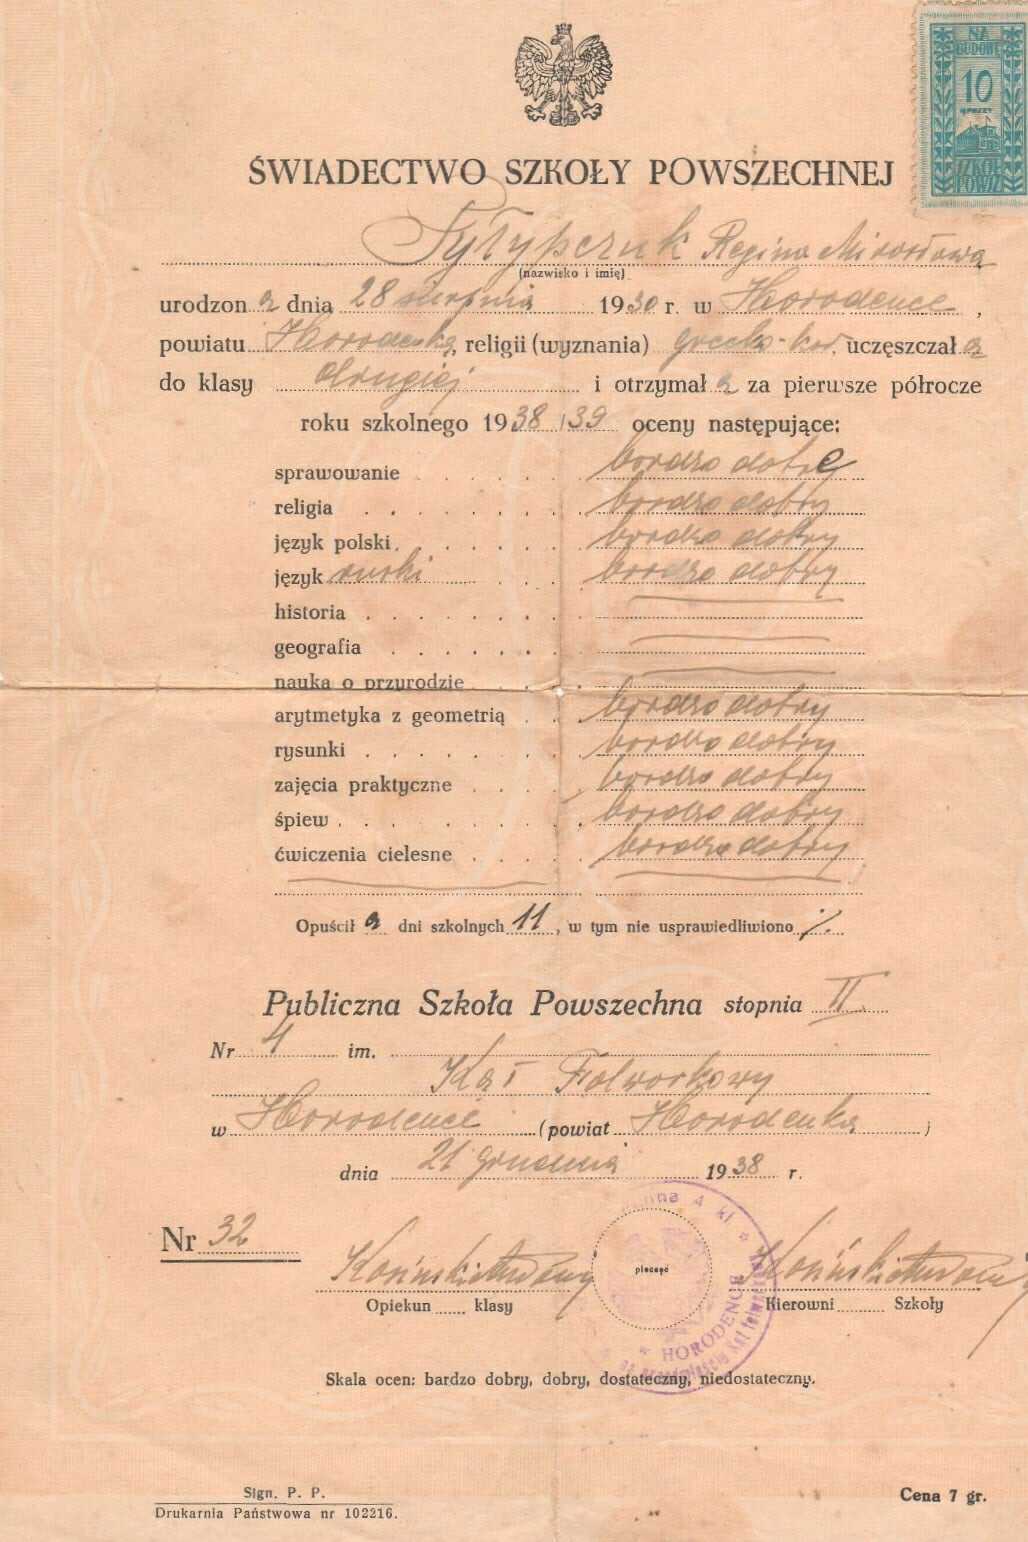 NA
BUDOWĘ
10
GROSZY
SZKÓŁ
POWSZ.
ŚWIADECTWO SZKOŁY POWSZECHNEJ
Tyłypczuk Regina Mirosława
(nazwisko i imię)
urodzon a dnia 28 sierpnia 1930 r. w Horodence ,
powiatu Horodenka, religii (wyznania) grecko-kat. uczęszczał a
do klasy drugiej i otrzymał a za pierwsze półrocze
roku szkolnego 1938/39 oceny następujące:
sprawowanie . . . . . bardzo dobre
religia . . . . . . . bardzo dobry
język polski . . . . . bardzo dobry
język ruski . . . bardzo dobry
historia . . . . . . .
geografia . . . . . .
nauka o przyrodzie . . .
arytmetyka z geometrią . . bardzo dobry
rysunki . . . . . . . bardzo dobry
zajęcia praktyczne . . . . bardzo dobry
śpiew . . . . . . . bardzo dobry
ćwiczenia cielesne . . . . bardzo dobry
Opuścił a dni szkolnych 11 , w tym nie usprawiedliwiono %.
Publiczna Szkoła Powszechna stopnia II.
Nr 4 im.
Kąt Folwarkowy
w Horodence (powiat Horodenka )
dnia 21 grudnia 1938 r.
Nr 32
pieczęć
4 kl
HORODENCE
Opiekun klasy
Kierowni Szkoły
Skala ocen: bardzo dobry, dobry, dostateczny, niedostateczny.
Sign. P. P.
Drukarnia Państwowa nr 102216.
Cena 7 gr.